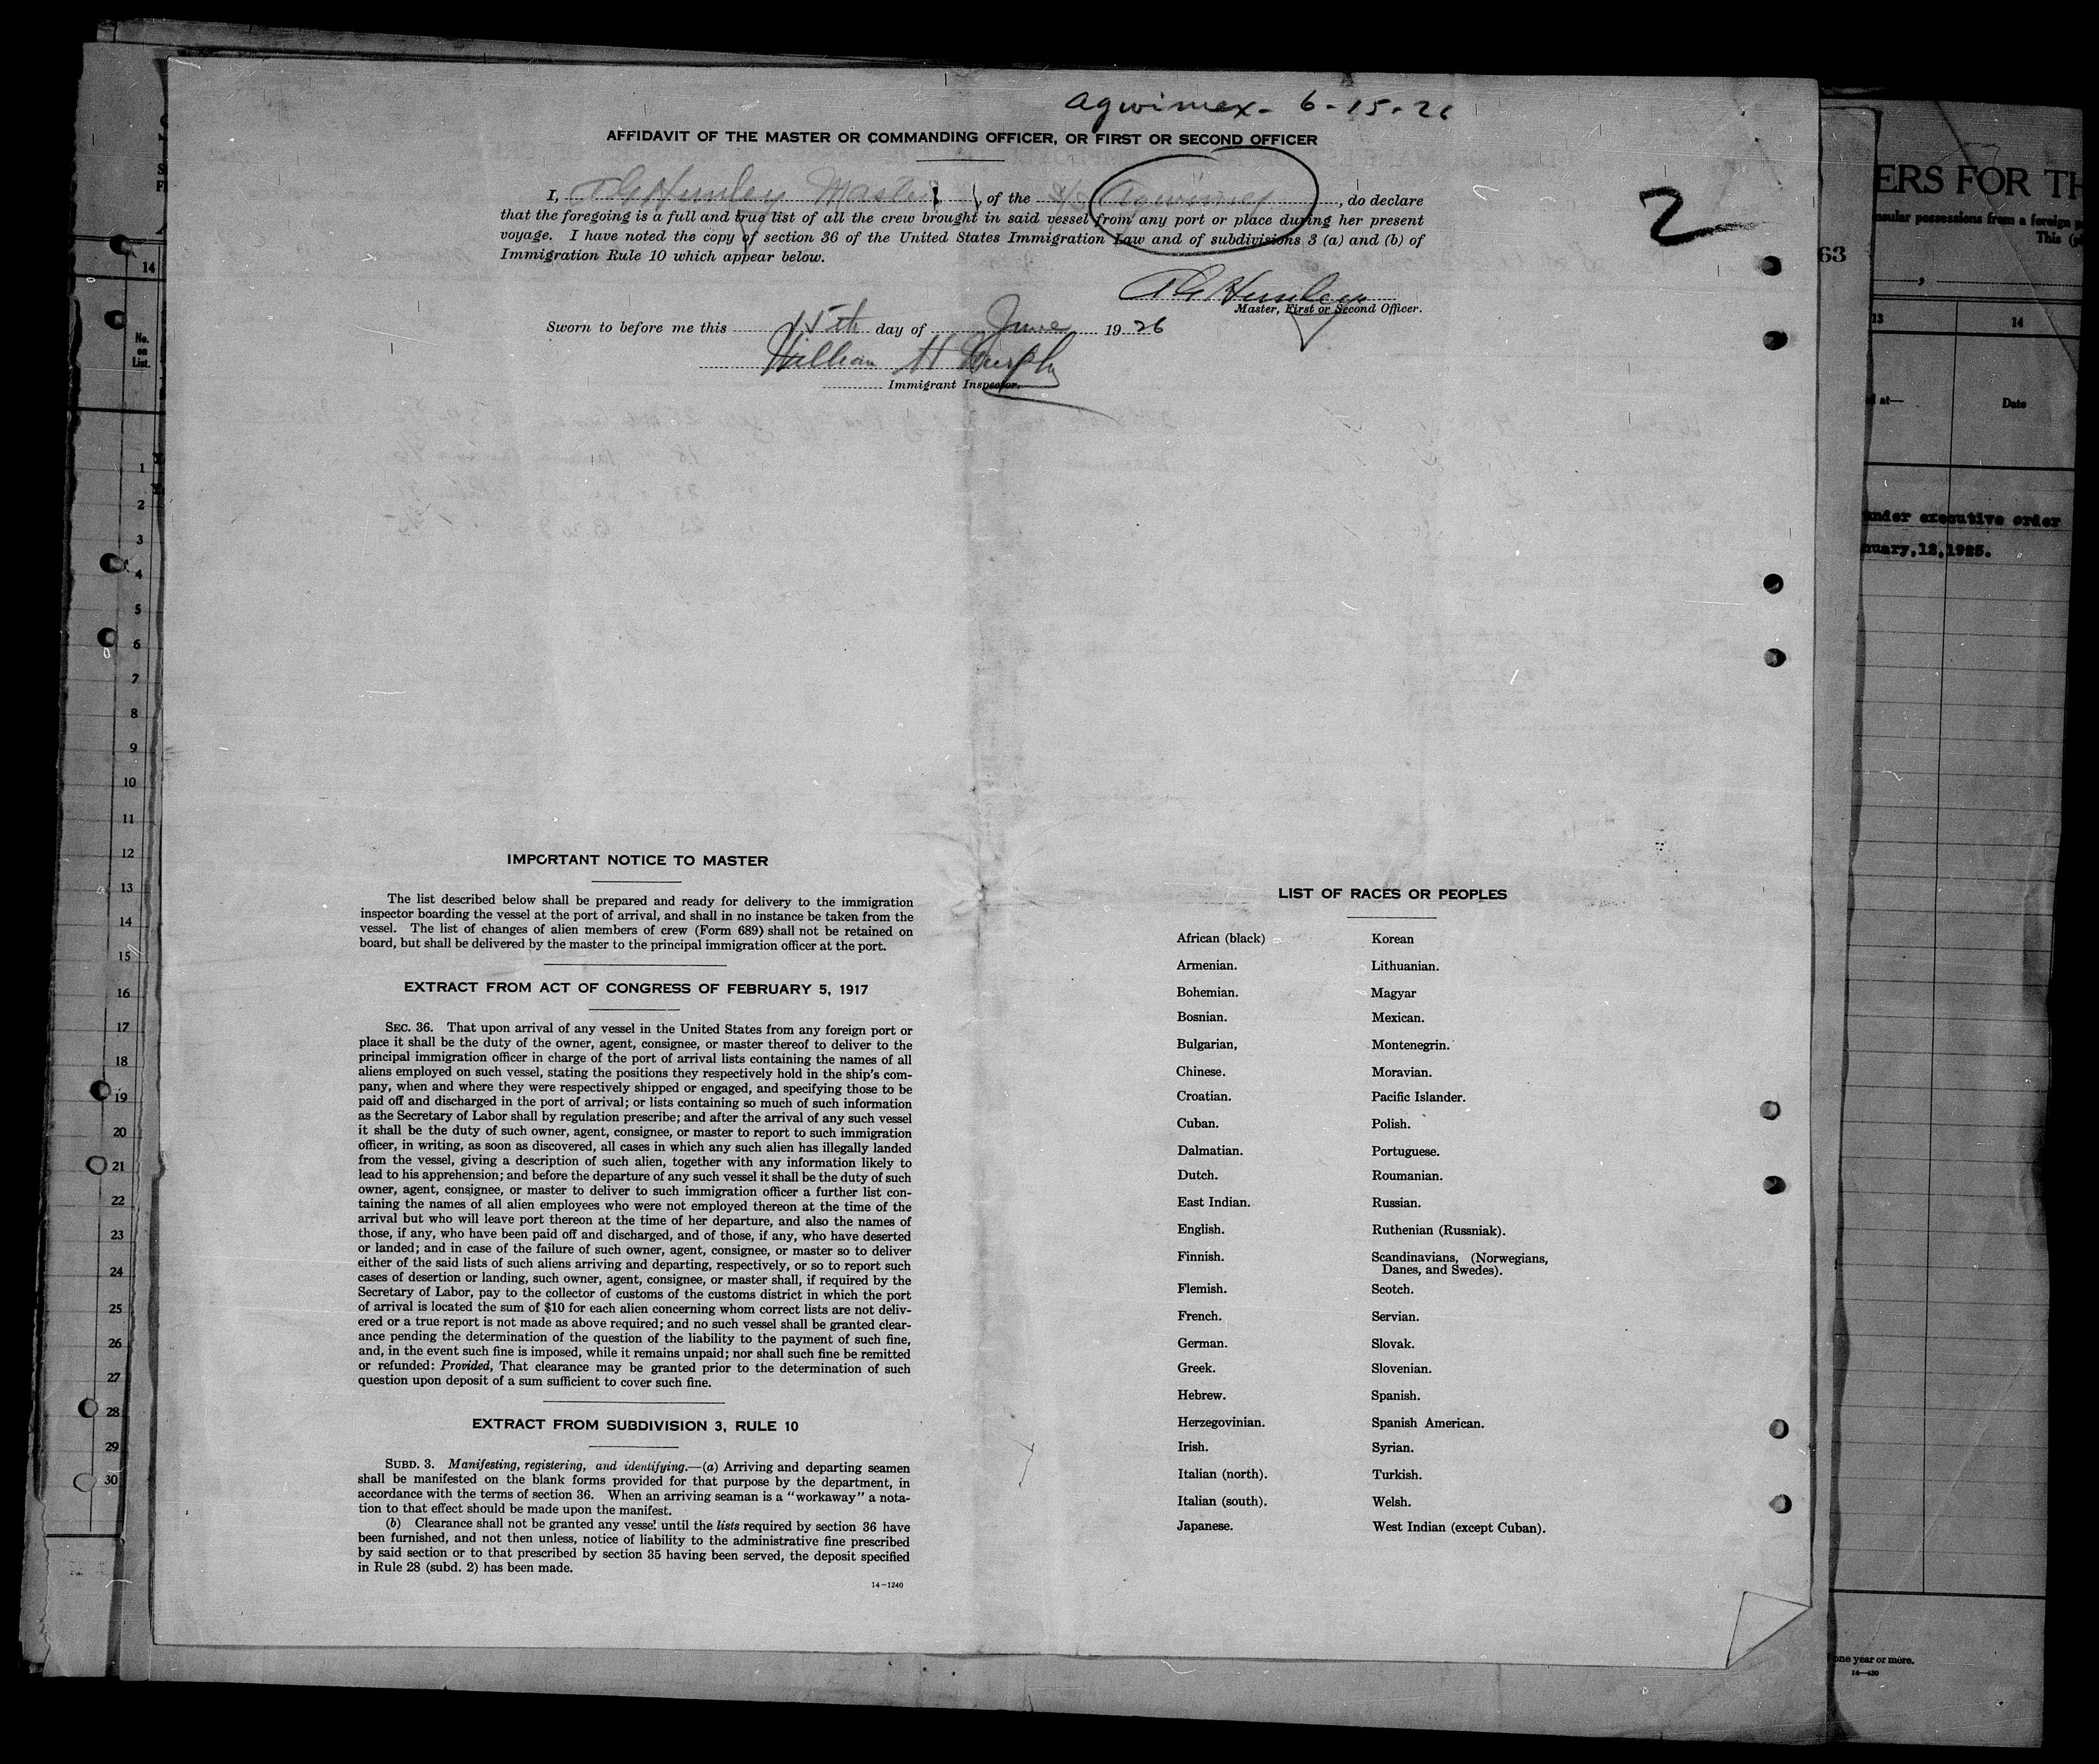 Agwimex - 6-15-26
AFFIDAVIT OF THE MASTER OR COMMANDING OFFICER, OR FIRST OR SECOND OFFICER
2
I, Master, of the S/S Agwimex, do declare
that the foregoing is a full and true list of all the crew brought in said vessel from any port or place during her present
voyage. I have noted the copy of section 36 of the United States Immigration Law and of subdivisions 3 (a) and (b) of
Immigration Rule 10 which appear below.
Master, First or Second Officer.
Sworn to before me this 15th day of June 1926
William H Murphy
Immigrant Inspector.
IMPORTANT NOTICE TO MASTER
The list described below shall be prepared and ready for delivery to the immigration
inspector boarding the vessel at the port of arrival, and shall in no instance be taken from the
vessel. The list of changes of alien members of crew (Form 689) shall not be retained on
board, but shall be delivered by the master to the principal immigration officer at the port.
EXTRACT FROM ACT OF CONGRESS OF FEBRUARY 5, 1917
SEC. 36. That upon arrival of any vessel in the United States from any foreign port or
place it shall be the duty of the owner, agent, consignee, or master thereof to deliver to the
principal immigration officer in charge of the port of arrival lists containing the names of all
aliens employed on such vessel, stating the positions they respectively hold in the ship's com-
pany, when and where they were respectively shipped or engaged, and specifying those to be
paid off and discharged in the port of arrival; or lists containing so much of such information
as the Secretary of Labor shall by regulation prescribe; and after the arrival of any such vessel
it shall be the duty of such owner, agent, consignee, or master to report to such immigration
officer, in writing, as soon as discovered, all cases in which any such alien has illegally landed
from the vessel, giving a description of such alien, together with any information likely to
lead to his apprehension; and before the departure of any such vessel it shall be the duty of such
owner, agent, consignee, or master to deliver to such immigration officer a further list con-
taining the names of all alien employees who were not employed thereon at the time of the
arrival but who will leave port thereon at the time of her departure, and also the names of
those, if any, who have been paid off and discharged, and of those, if any, who have deserted
or landed; and in case of the failure of such owner, agent, consignee, or master so to deliver
either of the said lists of such aliens arriving and departing, respectively, or so to report such
cases of desertion or landing, such owner, agent, consignee, or master shall, if required by the
Secretary of Labor, pay to the collector of customs of the customs district in which the port
of arrival is located the sum of $10 for each alien concerning whom correct lists are not deliv-
ered or a true report is not made as above required; and no such vessel shall be granted clear-
ance pending the determination of the question of the liability to the payment of such fine,
and, in the event such fine is imposed, while it remains unpaid; nor shall such fine be remitted
or refunded: Provided, That clearance may be granted prior to the determination of such
question upon deposit of a sum sufficient to cover such fine.
EXTRACT FROM SUBDIVISION 3, RULE 10
SUBD. 3. Manifesting, registering, and identifying.—(a) Arriving and departing seamen
shall be manifested on the blank forms provided for that purpose by the department, in
accordance with the terms of section 36. When an arriving seaman is a "workaway" a nota-
tion to that effect should be made upon the manifest.
(b) Clearance shall not be granted any vessel until the lists required by section 36 have
been furnished, and not then unless, notice of liability to the administrative fine prescribed
by said section or to that prescribed by section 35 having been served, the deposit specified
in Rule 28 (subd. 2) has been made.
14-1240
LIST OF RACES OR PEOPLES
African (black)
Armenian.
Bohemian.
Bosnian.
Bulgarian,
Chinese.
Croatian.
Cuban.
Dalmatian.
Dutch.
East Indian.
English.
Finnish.
Flemish.
French.
German.
Greek.
Hebrew.
Herzegovinian.
Irish.
Italian (north).
Italian (south).
Japanese.
Korean
Lithuanian.
Magyar
Mexican.
Montenegrin.
Moravian.
Pacific Islander.
Polish.
Portuguese.
Roumanian.
Russian.
Ruthenian (Russniak).
Scandinavians, (Norwegians,
Danes, and Swedes).
Scotch.
Servian.
Slovak.
Slovenian.
Spanish.
Spanish American.
Syrian.
Turkish.
Welsh.
West Indian (except Cuban).
14
No.
on
List.
1
2
3
4
5
6
7
8
9
10
11
12
13
14
15
16
17
18
19
20
21
22
23
24
25
26
27
28
29
30
63
ERS FOR TH
nsular possessions from a foreign
This
13
14
at—
Date
under executive order
nuary,12,1925.
one year or more.
14-430